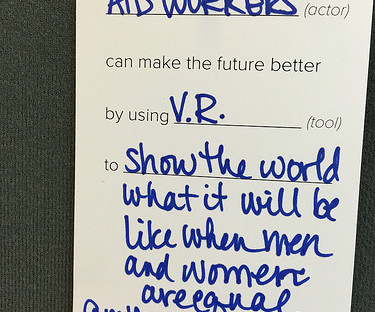 AID WORKERS (actor)
can make the future better
by using V.R. (tool)
to show the world
what it will be
like when men
and women
are equal